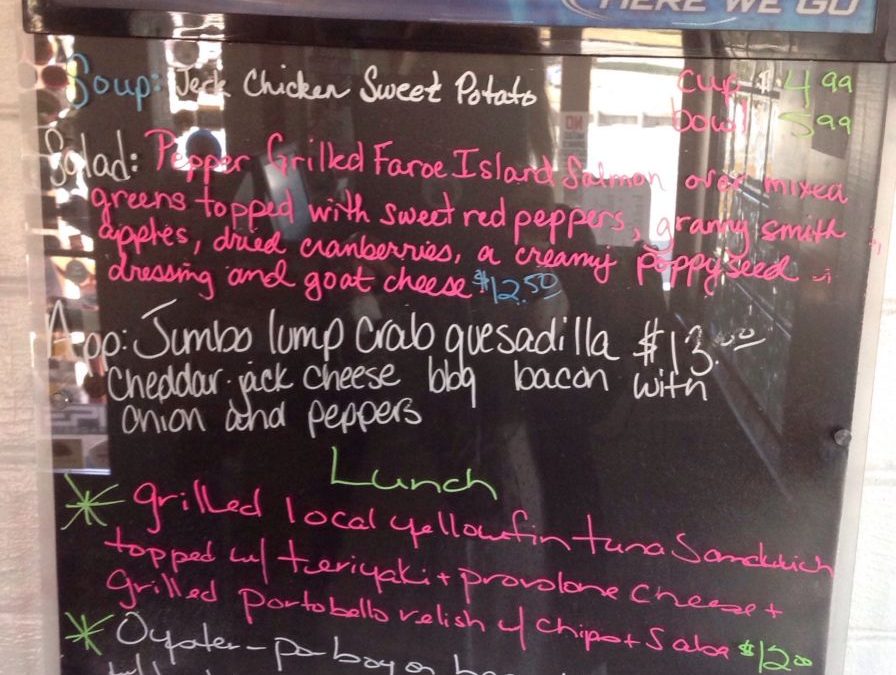 HERE WE GO
Soup: Jerk Chicken Sweet Potato cup $4.99
bowl 5.99
Salad: Pepper Grilled Faroe Island Salmon over mixed
greens topped with sweet red peppers, granny smith
apples, dried cranberries, a creamy poppyseed
dressing and goat cheese $12.50
App: Jumbo lump crab quesadilla $13.00
cheddar-jack cheese bbq bacon with
onion and peppers
Lunch
* grilled local yellowfin tuna Sandwich
topped w/ teriyaki + provolone cheese +
grilled portobello relish w/ chips + Salsa $12.00
* Oyster-po boy on